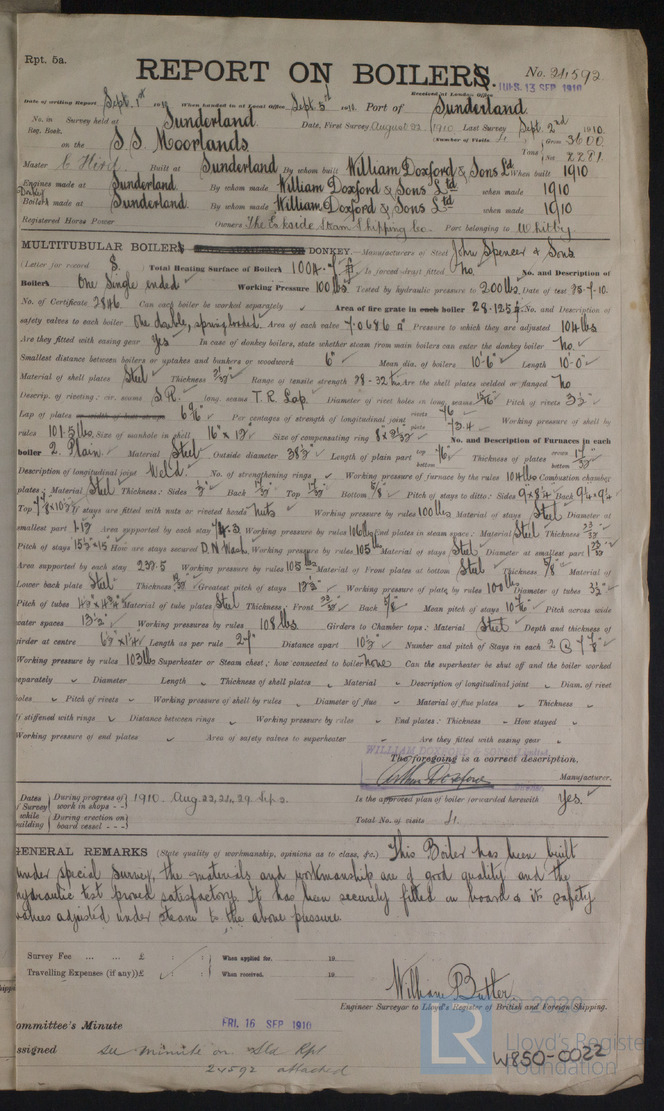 Rpt. 5a.
REPORT ON BOILERS.
No. 24592
Received at London Office TUES. 13 SEP 1910
Date of writing Report Sept. 1st 1910 When handed in at Local Office Sept. 5th 1910 Port of Sunderland
No. in Reg. Book. Survey held at Sunderland Date, First Survey August 22 1910 Last Survey Sept. 2nd 1910
on the S.S. Moorlands (Number of Visits 4) Tons Gross 3600 Net 2281
Master C Hird Built at Sunderland By whom built William Doxford & Sons Ld When built 1910
Engines made at Sunderland By whom made William Doxford & Sons Ltd when made 1910
Donkey Boilers made at Sunderland By whom made William Doxford & Sons Ltd when made 1910
Registered Horse Power Owners The Eskside Steam Shipping Co. Port belonging to Whitby
MULTITUBULAR BOILERS DONKEY.—Manufacturers of Steel John Spencer & Sons
(Letter for record S.) Total Heating Surface of Boilers Is forced draft fitted No. No. and Description of
Boilers One Single ended Working Pressure 100 lbs Tested by hydraulic pressure to 200 lbs Date of test 25.7.10.
No. of Certificate 2846 Can each boiler be worked separately Area of fire grate in each boiler 28.125 No. and Description of
safety valves to each boiler One double, spring loaded. Area of each valve 7.0686 Pressure to which they are adjusted 104 lbs
Are they fitted with easing gear Yes In case of donkey boilers, state whether steam from main boilers can enter the donkey boiler No
Smallest distance between boilers or uptakes and bunkers or woodwork 6" Mean dia. of boilers 10'-6" Length 10'-0"
Material of shell plates Steel Thickness Range of tensile strength 28-32 tons Are the shell plates welded or flanged No
Descrip. of riveting: cir. seams S.R. long. seams T.R. Lap. Diameter of rivet holes in long. seams 15/16" Pitch of rivets 3½"
Lap of plates Per centages of strength of longitudinal joint rivets 76 plate 73.4 Working pressure of shell by
rules 101.5 lbs. Size of manhole in shell 16" x 12" Size of compensating ring No. and Description of Furnaces in each
boiler 2. Plain Material Steel Outside diameter 38½" Length of plain part top bottom Thickness of plates crown bottom
Description of longitudinal joint Weld No. of strengthening rings Working pressure of furnace by the rules 104 lbs Combustion chamber
plates: Material Steel Thickness: Sides Back Top Bottom 5/8" Pitch of stays to ditto: Sides 9 x 8¼ Back 9¼ x 9¼
Top If stays are fitted with nuts or riveted heads Nuts Working pressure by rules 100 lbs Material of stays Steel Diameter at
smallest part Area supported by each stay Working pressure by rules 106 lbs End plates in steam space: Material Steel Thickness
Pitch of stays 15½ x 15 How are stays secured D.N. Wash. Working pressure by rules 105 lbs Material of stays Steel Diameter at smallest part
Area supported by each stay 232.5 Working pressure by rules 105 lbs Material of Front plates at bottom Steel Thickness 5/8" Material of
Lower back plate Steel Thickness Greatest pitch of stays 13½" Working pressure of plate by rules 100 lbs Diameter of tubes 3½"
Pitch of tubes Material of tube plates Steel Thickness: Front Back 5/8" Mean pitch of stays Pitch across wide
water spaces 13½" Working pressures by rules 108 lbs Girders to Chamber tops: Material Steel Depth and thickness of
girder at centre 6½" x 1¼" Length as per rule 27 Distance apart 10½" Number and pitch of Stays in each 2 @ 7 7/8"
Working pressure by rules 103 lbs Superheater or Steam chest; how connected to boiler None Can the superheater be shut off and the boiler worked
separately Diameter Length Thickness of shell plates Material Description of longitudinal joint Diam. of rivet
holes Pitch of rivets Working pressure of shell by rules Diameter of flue Material of flue plates Thickness
If stiffened with rings Distance between rings Working pressure by rules End plates: Thickness How stayed
Working pressure of end plates Area of safety valves to superheater Are they fitted with easing gear
WILLIAM DOXFORD & SONS, Limited.
The foregoing is a correct description.
Arthur Doxford Manufacturer.
Dates of Survey while building During progress of work in shops - - 1910. Aug. 22, 24, 29. Sep. 2.
During erection on board vessel - - -
Is the approved plan of boiler forwarded herewith Yes.
Total No. of visits 4.
GENERAL REMARKS (State quality of workmanship, opinions as to class, &c.) This Boiler has been built
under special survey, the materials and workmanship are of good quality and the
hydraulic test proved satisfactory. It has been securely fitted on board & its safety
valves adjusted under steam to the above pressure.
Survey Fee ... ... £ : : When applied for, 19
Travelling Expenses (if any) £ : : When received, 19
William Butler
Engineer Surveyor to Lloyd's Register of British and Foreign Shipping.
Committee's Minute FRI. 16 SEP 1910
Assigned see minute on Std Rpt
24592 attached
© 2020
Lloyd's Register
Foundation
W850-0022